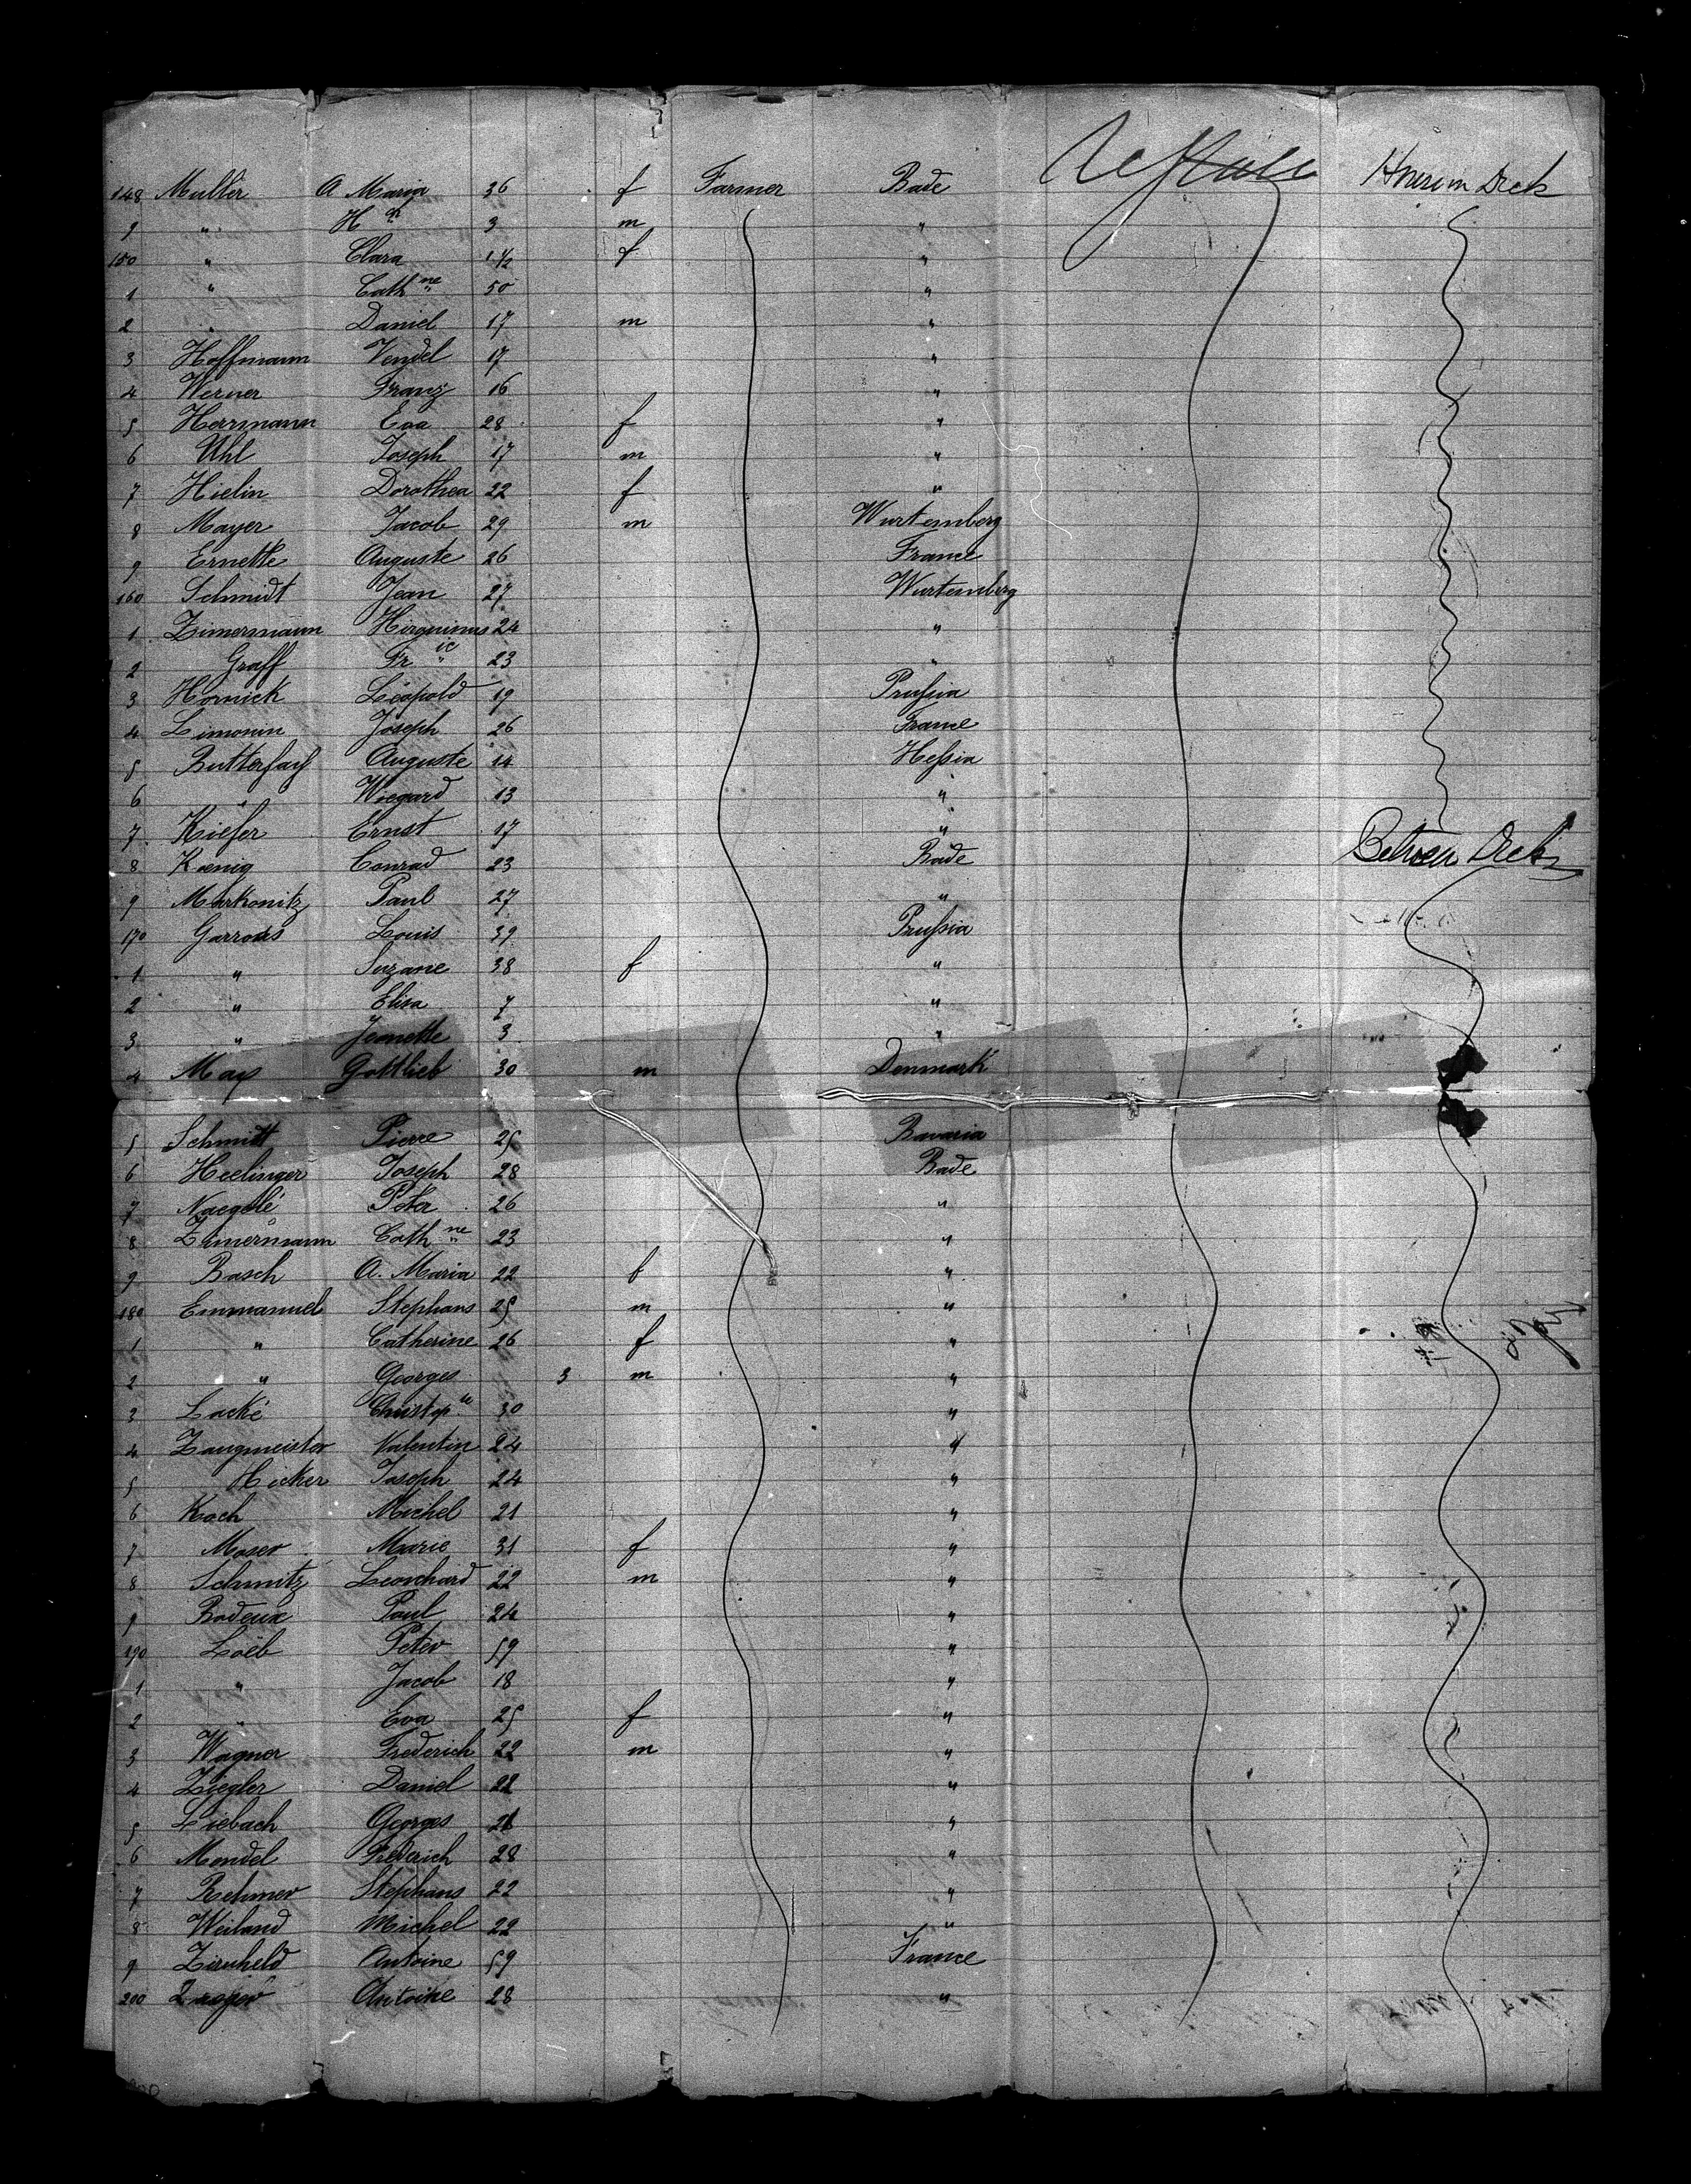 148 Muller A Maria 36 f Farmer Bade House in Deck
9 " Hch 3 m "
150 " Clara 1 1/2 f "
1 " Cath ne 50 "
2 " Daniel 17 m "
3 Hoffmann Vendel 17 "
4 Werner Franz 16 "
5 Herrmann Eva 28 f "
6 Uhl Joseph 17 m "
7 Hielin Dorothea 22 f "
8 Mayer Jacob 29 m Wurtemberg
9 Ernette Auguste 26 France
160 Schmidt Jean 27 Wurtemberg
1 Zimermann Hirquimus 24 "
2 Graff Fr ic 23 "
3 Hornick Léopold 19 Prussia
4 Limonin Joseph 26 France
5 Butterfass Auguste 14 Hessia
6 " Wiegard 13 "
7 Kiefer Ernst 17 "
8 Kœnig Conrad 23 Bade Between Deck
9 Markonitz Paul 27 "
170 Garrous Louis 39 Prussia
1 " Suzane 38 f "
2 " Elisa 7 "
3 " Jeanette 3 "
4 May Gottlieb 30 m Denmark
5 Schmitt Pierre 25 Bavaria
6 Heelinger Joseph 28 Bade
7 Naegelé Peter 26 "
8 Zimermann Cath ne 23 "
9 Basch A. Maria 22 f "
180 Emmanuel Stephans 25 m "
1 " Catherine 26 f "
2 " Georges 3 m "
3 Lacké Christop 30 "
4 Zaugmeister Valentin 24 "
5 Hicker Joseph 24 "
6 Koch Michel 21 "
7 Moser Marie 31 f "
8 Schmitz Leonhard 22 m "
9 Badeux Paul 24 "
190 Loëb Peter 59 "
1 " Jacob 18 "
2 " Eva 25 f "
3 Wagner Frederich 22 m "
4 Ziegler Daniel 22 "
5 Liebach Georges 21 "
6 Mendel Frederich 28 "
7 Rehmer Stephans 22 "
8 Weiland Michel 22 "
9 Zirnheld Antoine 59 France
200 Antoine 28 "